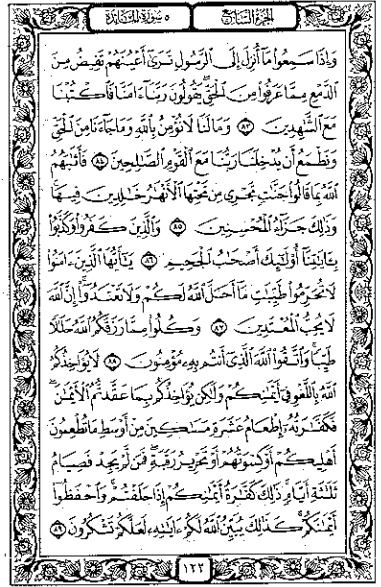 الجزء السابع ٥ سورة المائدة
وَإِذَا سَمِعُوا مَا أُنزِلَ إِلَى الرَّسُولِ تَرَىٰ أَعْيُنَهُمْ تَفِيضُ مِنَ
الدَّمْعِ مِمَّا عَرَفُوا مِنَ الْحَقِّ يَقُولُونَ رَبَّنَا آمَنَّا فَاكْتُبْنَا
مَعَ الشَّاهِدِينَ ٨٣ وَمَا لَنَا لَا نُؤْمِنُ بِاللَّهِ وَمَا جَاءَنَا مِنَ الْحَقِّ
وَنَطْمَعُ أَن يُدْخِلَنَا رَبُّنَا مَعَ الْقَوْمِ الصَّالِحِينَ ٨٤ فَأَثَابَهُمُ
اللَّهُ بِمَا قَالُوا جَنَّاتٍ تَجْرِي مِن تَحْتِهَا الْأَنْهَارُ خَالِدِينَ فِيهَا
وَذَٰلِكَ جَزَاءُ الْمُحْسِنِينَ ٨٥ وَالَّذِينَ كَفَرُوا وَكَذَّبُوا
بِآيَاتِنَا أُولَٰئِكَ أَصْحَابُ الْجَحِيمِ ٨٦ يَا أَيُّهَا الَّذِينَ آمَنُوا
لَا تُحَرِّمُوا طَيِّبَاتِ مَا أَحَلَّ اللَّهُ لَكُمْ وَلَا تَعْتَدُوا إِنَّ اللَّهَ
لَا يُحِبُّ الْمُعْتَدِينَ ٨٧ وَكُلُوا مِمَّا رَزَقَكُمُ اللَّهُ حَلَالًا
طَيِّبًا وَاتَّقُوا اللَّهَ الَّذِي أَنتُم بِهِ مُؤْمِنُونَ ٨٨ لَا يُؤَاخِذُكُمُ
اللَّهُ بِاللَّغْوِ فِي أَيْمَانِكُمْ وَلَٰكِن يُؤَاخِذُكُم بِمَا عَقَّدتُّمُ الْأَيْمَانَ
فَكَفَّارَتُهُ إِطْعَامُ عَشَرَةِ مَسَاكِينَ مِنْ أَوْسَطِ مَا تُطْعِمُونَ
أَهْلِيكُمْ أَوْ كِسْوَتُهُمْ أَوْ تَحْرِيرُ رَقَبَةٍ فَمَن لَّمْ يَجِدْ فَصِيَامُ
ثَلَاثَةِ أَيَّامٍ ذَٰلِكَ كَفَّارَةُ أَيْمَانِكُمْ إِذَا حَلَفْتُمْ وَاحْفَظُوا
أَيْمَانَكُمْ كَذَٰلِكَ يُبَيِّنُ اللَّهُ لَكُمْ آيَاتِهِ لَعَلَّكُمْ تَشْكُرُونَ ٨٩
١٢٢